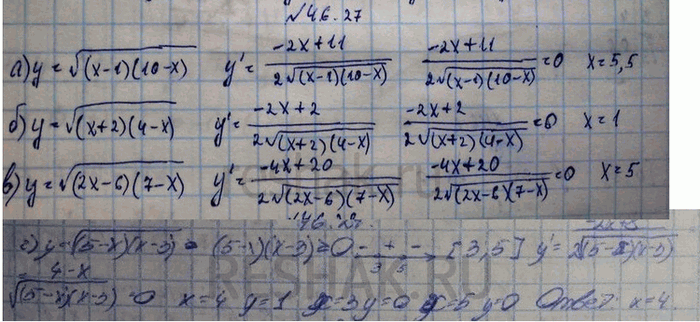 №46.27
а) y = √((x-1)(10-x)) y' = (-2x+11)/(2√((x-1)(10-x))) (-2x+11)/(2√((x-1)(10-x))) = 0 x = 5,5
б) y = √((x+2)(4-x)) y' = (-2x+2)/(2√((x+2)(4-x))) (-2x+2)/(2√((x+2)(4-x))) = 0 x = 1
в) y = √((2x-6)(7-x)) y' = (-4x+20)/(2√((2x-6)(7-x))) (-4x+20)/(2√((2x-6)(7-x))) = 0 x = 5
г) y = √((5-x)(x-3)) = (5-x)(x-3) ≥ 0 - + - 3 5 [3,5] y' = /(2√((5-x)(x-3)))
(4-x)/√((5-x)(x-3)) = 0 x=4 y=1 x=3 y=0 x=5 y=0 Ответ: x=4.
RESHAK.RU